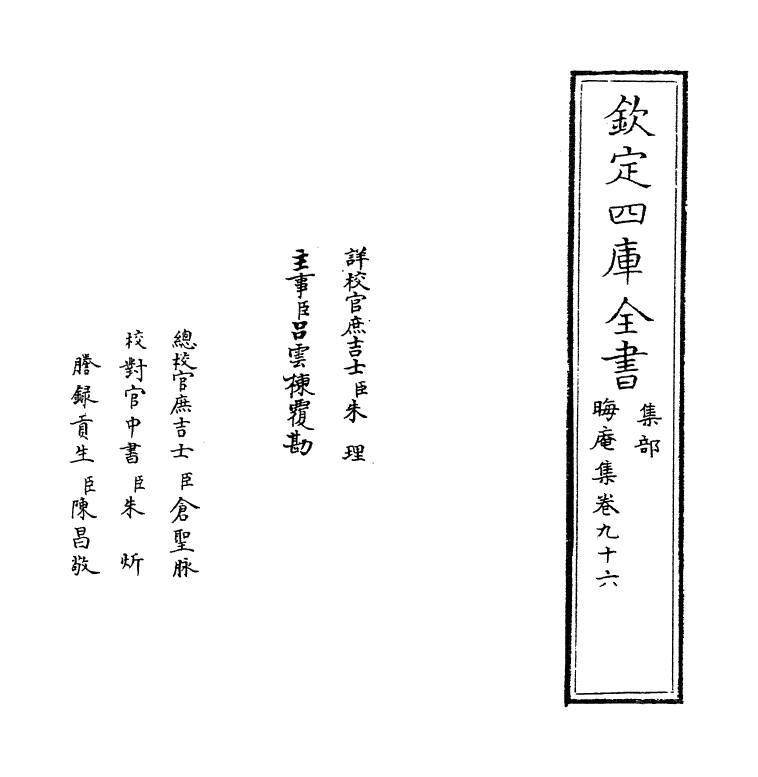 欽定四庫全書
集部
晦庵集卷九十六
詳校官庶吉士臣朱理
主事臣呂雲棟覆勘
總校官庶吉士臣倉聖脉
校對官中書臣朱炘
謄録貢生臣陳昌敬